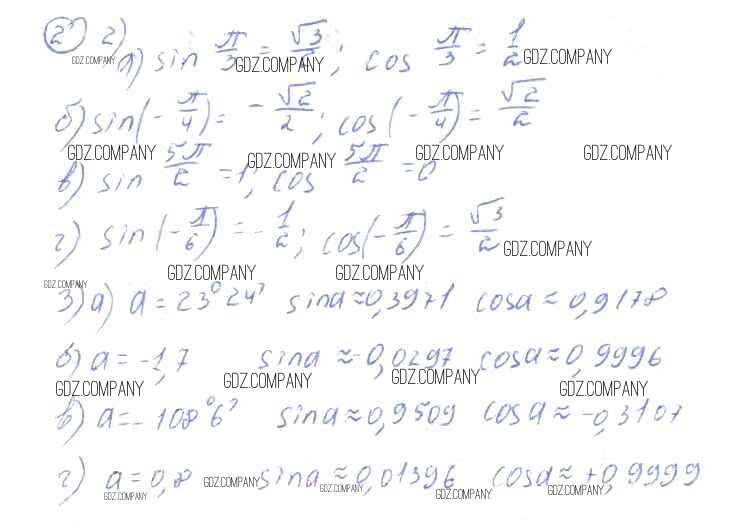 2) 2)
GDZ.COMPANY
а) sin π/3 = √3/2; cos π/3 = 1/2
GDZ.COMPANY GDZ.COMPANY
б) sin(-π/4) = -√2/2; cos(-π/4) = √2/2
GDZ.COMPANY GDZ.COMPANY GDZ.COMPANY GDZ.COMPANY
в) sin 5π/2 = 1; cos 5π/2 = 0
г) sin(-π/6) = -1/2; cos(-π/6) = √3/2
GDZ.COMPANY
GDZ.COMPANY GDZ.COMPANY
GDZ.COMPANY
3) а) a = 23°24' sina ≈ 0,3971 cosa ≈ 0,9178
б) a = -1,7 sina ≈ -0,0297 cosa ≈ 0,9996
GDZ.COMPANY GDZ.COMPANY GDZ.COMPANY GDZ.COMPANY
в) a = -108°6' sina ≈ 0,9509 cosa ≈ -0,3107
г) a = 0,8 sina ≈ 0,01396 cosa ≈ +0,9999
GDZ.COMPANY GDZ.COMPANY GDZ.COMPANY GDZ.COMPANY GDZ.COMPANY